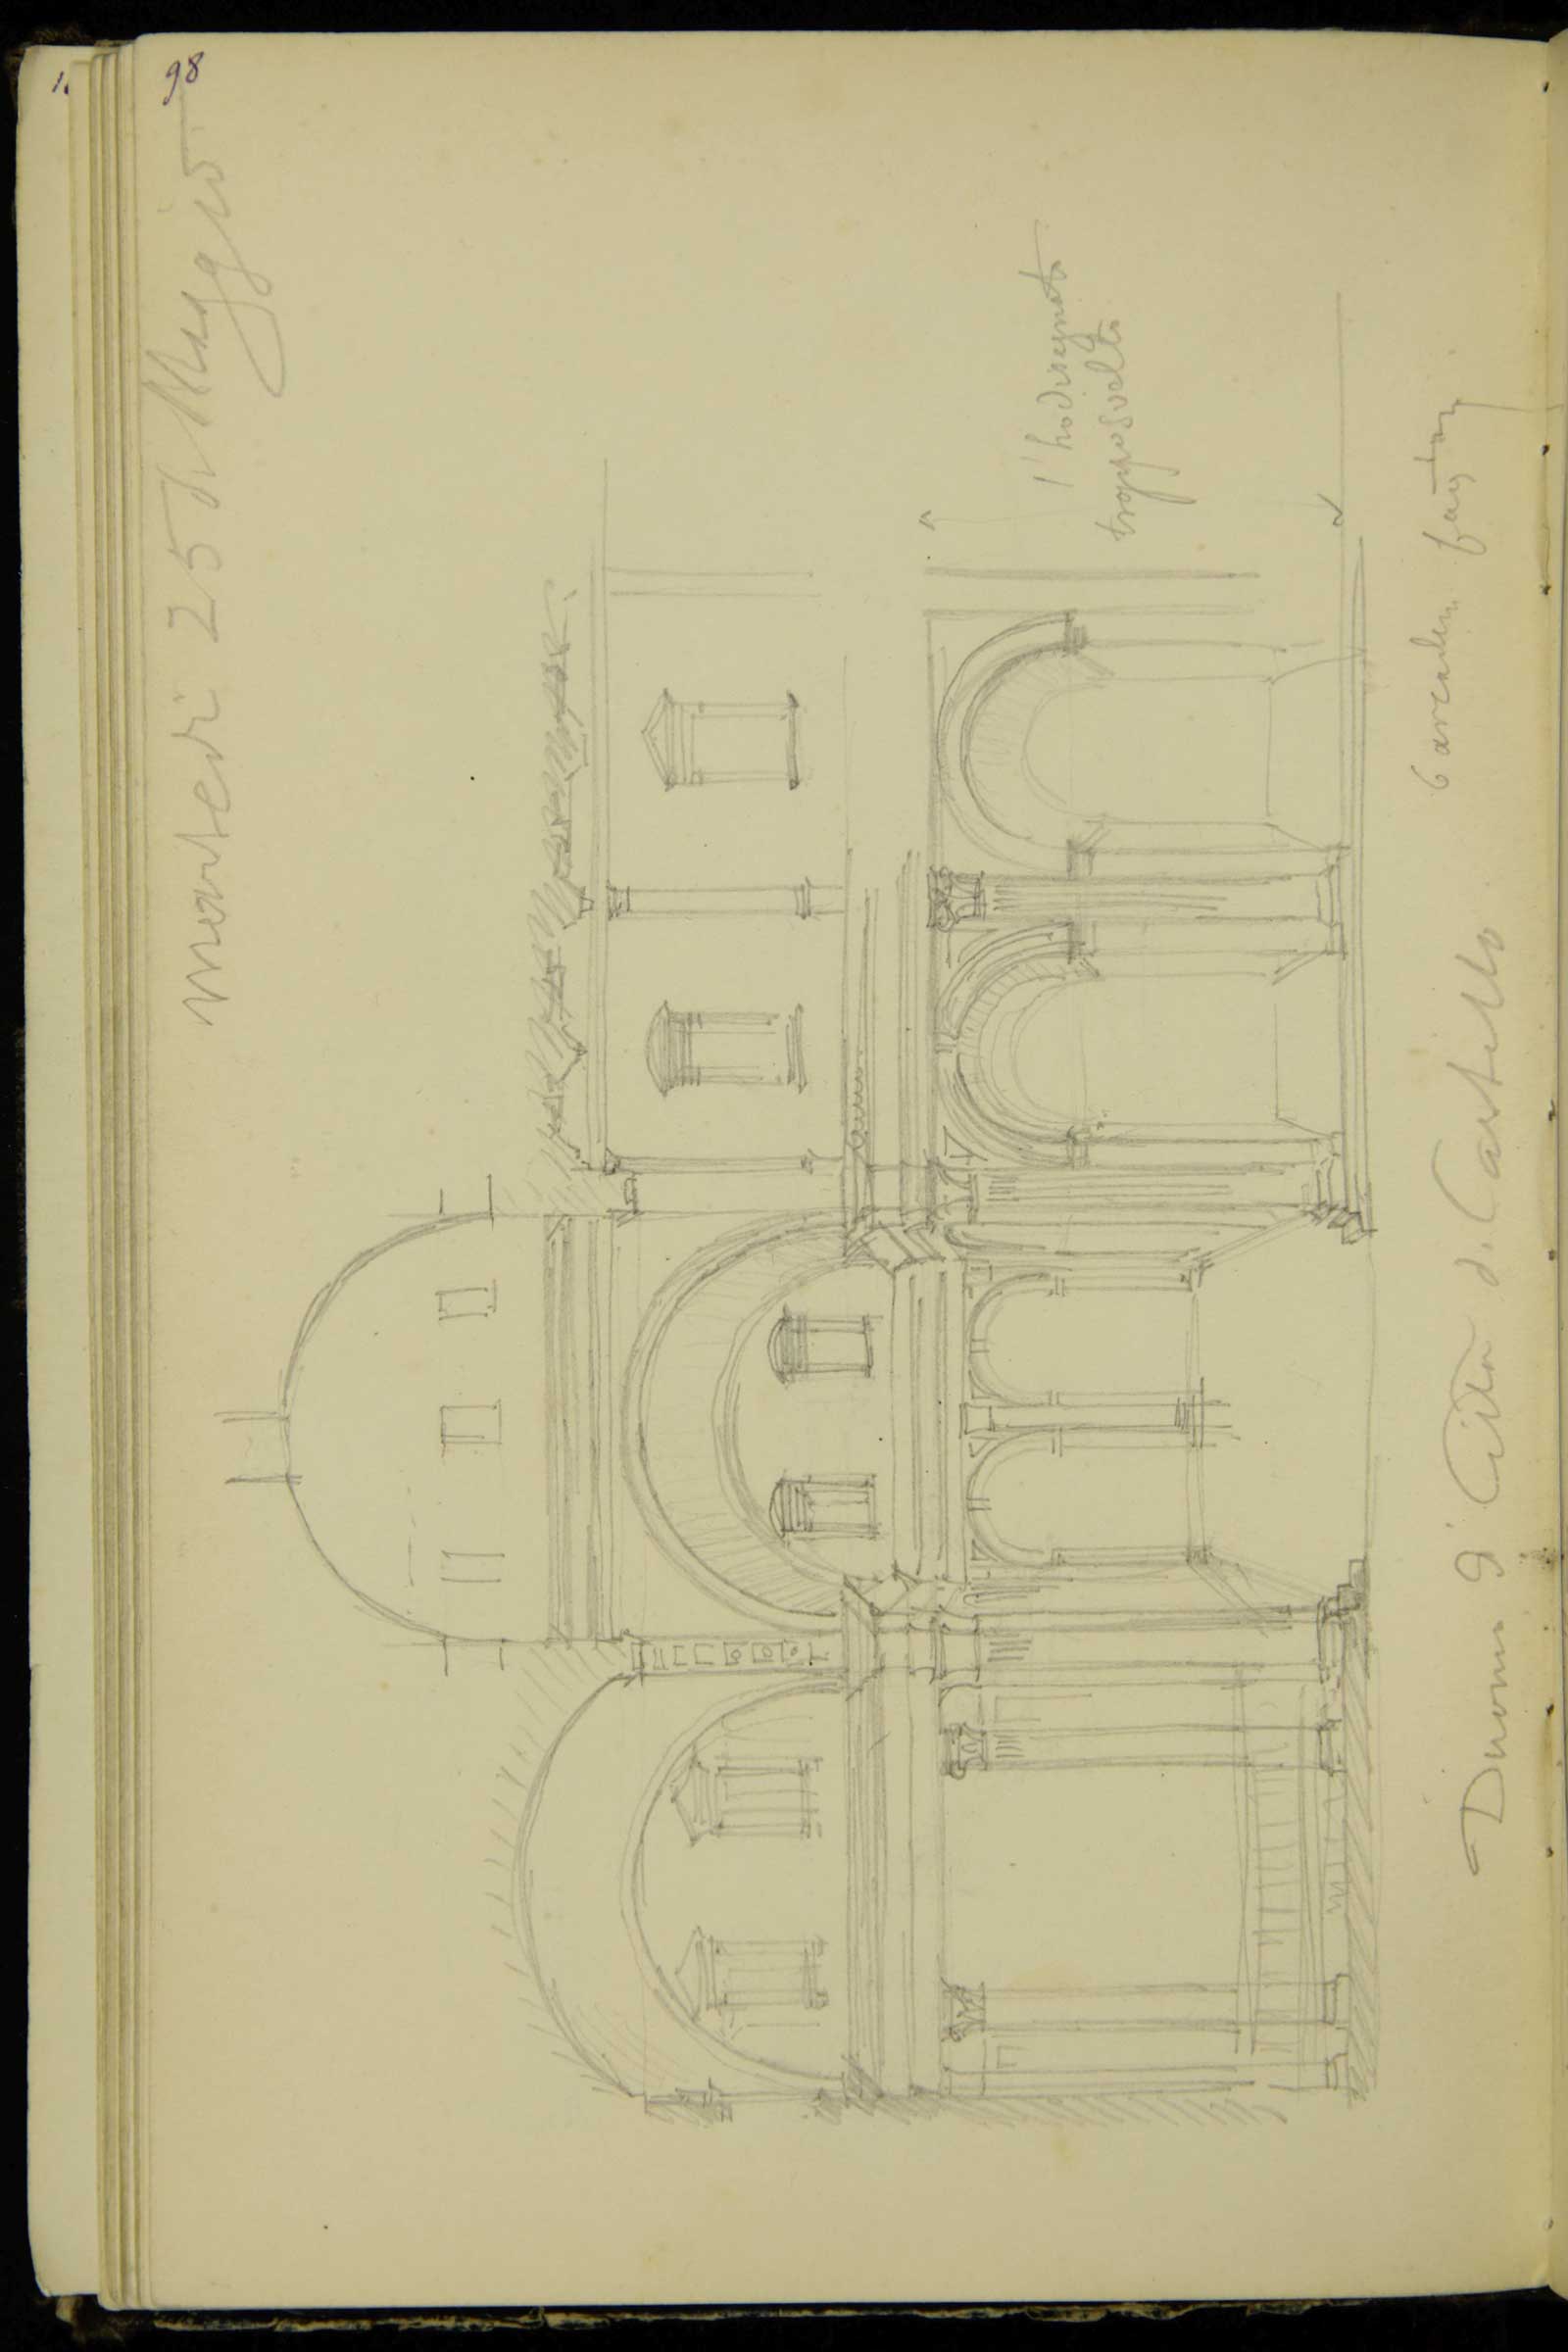 98
martedi 25 di Maggio
l'ho disegnato
troppo svelto
6 arcades
Duomo d. Città d. Castello